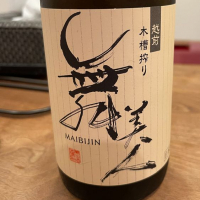 越前
木槽搾り
舞美人
MAIBIJIN